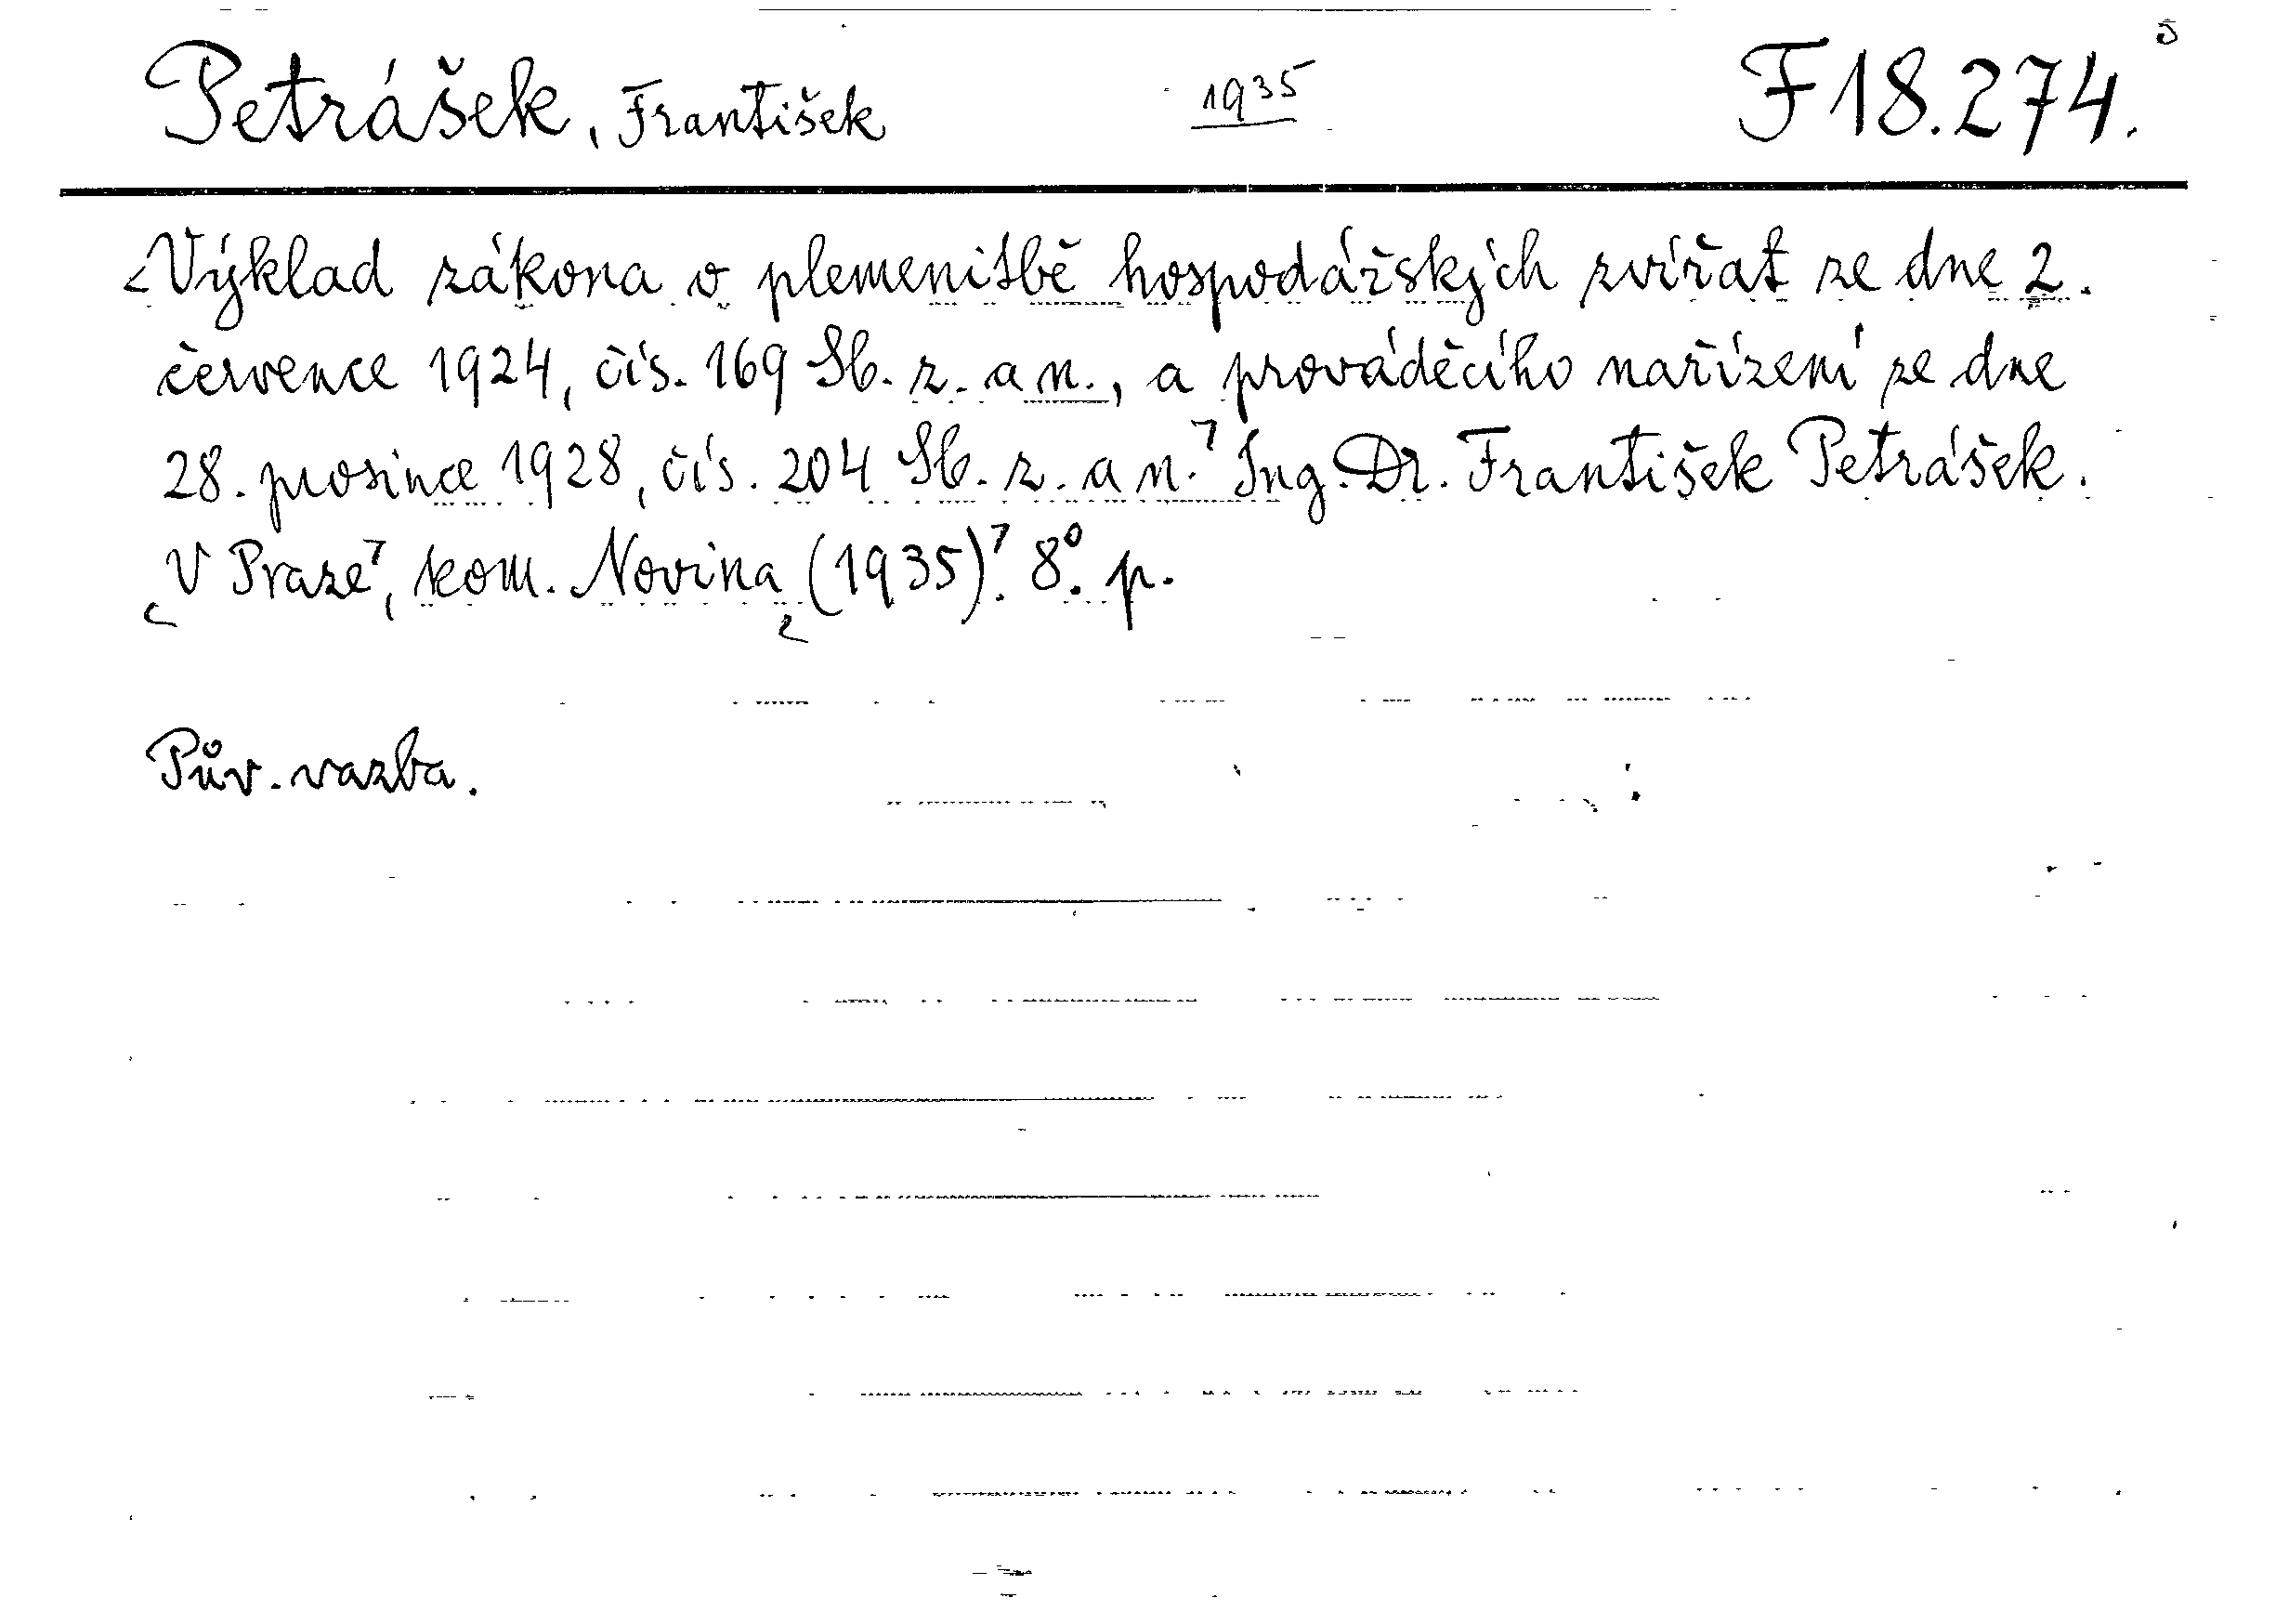 Petrášek, František 1935 F 18.274.
Výklad zákona o plemenitbě hospodářských zvířat ze dne 2.
července 1924, čís. 169 Sb. z. a n., a prováděcího nařízení ze dne
28. prosince 1928, čís. 204 Sb. z. a n. Ing. Dr. František Petrášek.
V Praze, kom. Novina (1935). 8°. p.
Pův. vazba.